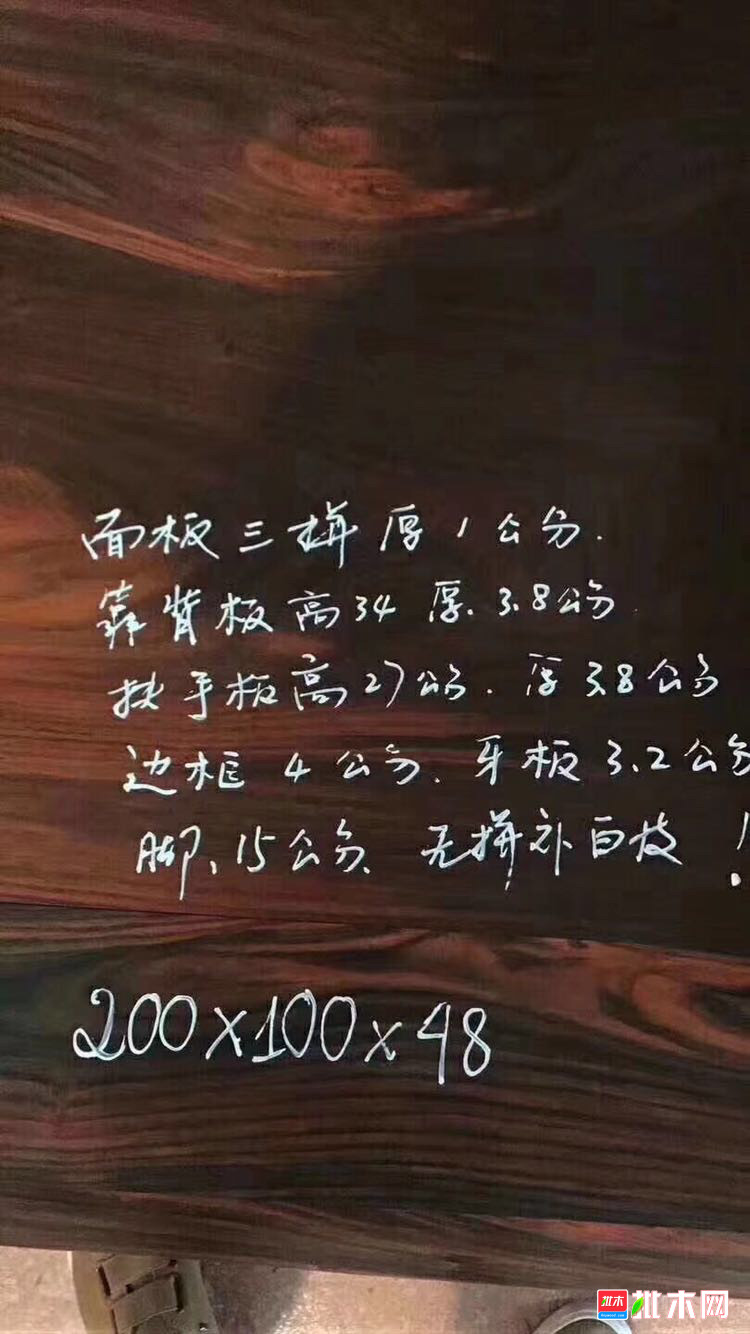 面板三拼厚1公分.
靠背板高34 厚.3.8公分.
扶手板高27公分.厚3.8公分
边框 4公分.牙板3.2公分
脚、15公分、无拼补白枝!
200x100x48
批木 批木网